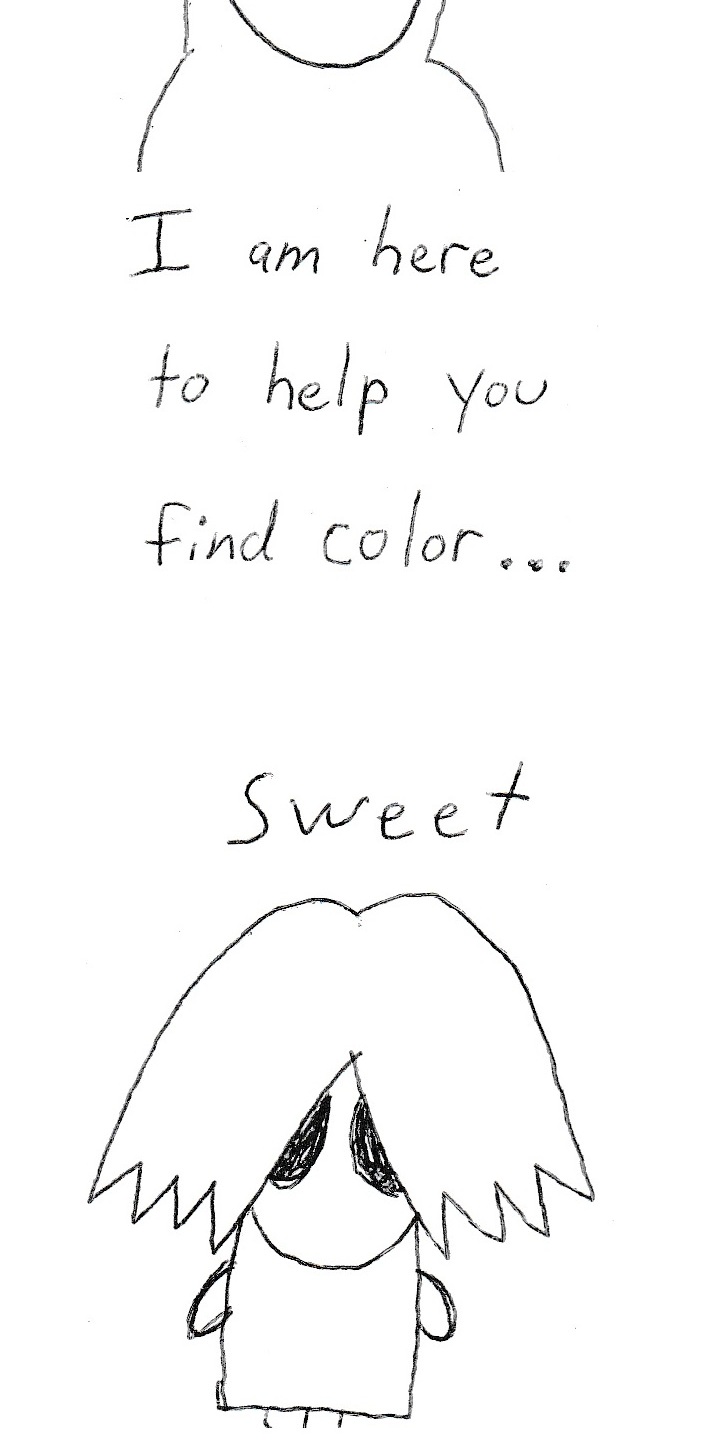 I am here
to help you
find color...
Sweet